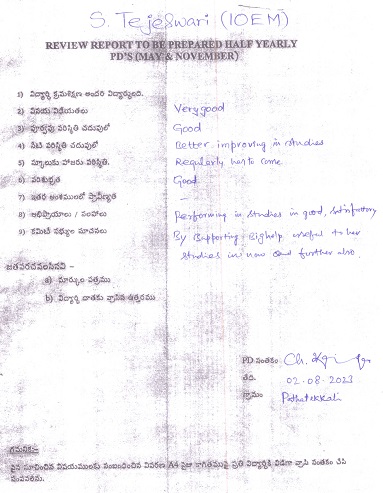 S. Tejeswari (IOEM)
REVIEW REPORT TO BE PREPARED HALF YEARLY
PD'S (MAY & NOVEMBER)
1) విద్యార్థి క్రమశిక్షణ అందరి విద్యార్థులది.
2) వినయ విధేయతలు Very good
3) పూర్వపు పరిస్థితి చదువులో Good
4) నేటి పరిస్థితి చదువులో Better improving in studies
5) స్కూలుకు హాజరు పరిస్థితి. Regularly has to come
6) పరిశుభ్రత Good
7) ఇతర అంశములలో ప్రావీణ్యత —
8) అభిప్రాయాలు / సలహాలు Performing in studies in good, satisfactory
9) కమిటీ సభ్యుల సూచనలు By Supporting Bighelp useful to her
studies in now and further also.
జతపరచవలసినవి :-
a) మార్కుల పత్రము
b) విద్యార్థి దాతకు వ్రాసిన ఉత్తరము
PD సంతకం Ch.
తేది. 02-08-2023
గ్రామం Pathatekkali
గమనిక:-
పైన సూచించిన విషయములకు సంబంధించిన వివరణ A4 సైజు కాగితముపై ప్రతి విద్యార్థికి విడిగా వ్రాసి సంతకం చేసి
పంపవలెను.